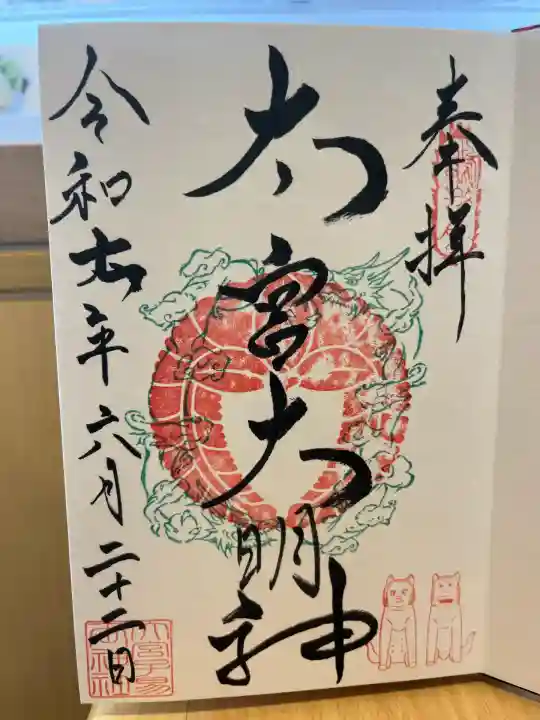 奉拝
太宮大明神
令和七年六月二十二日